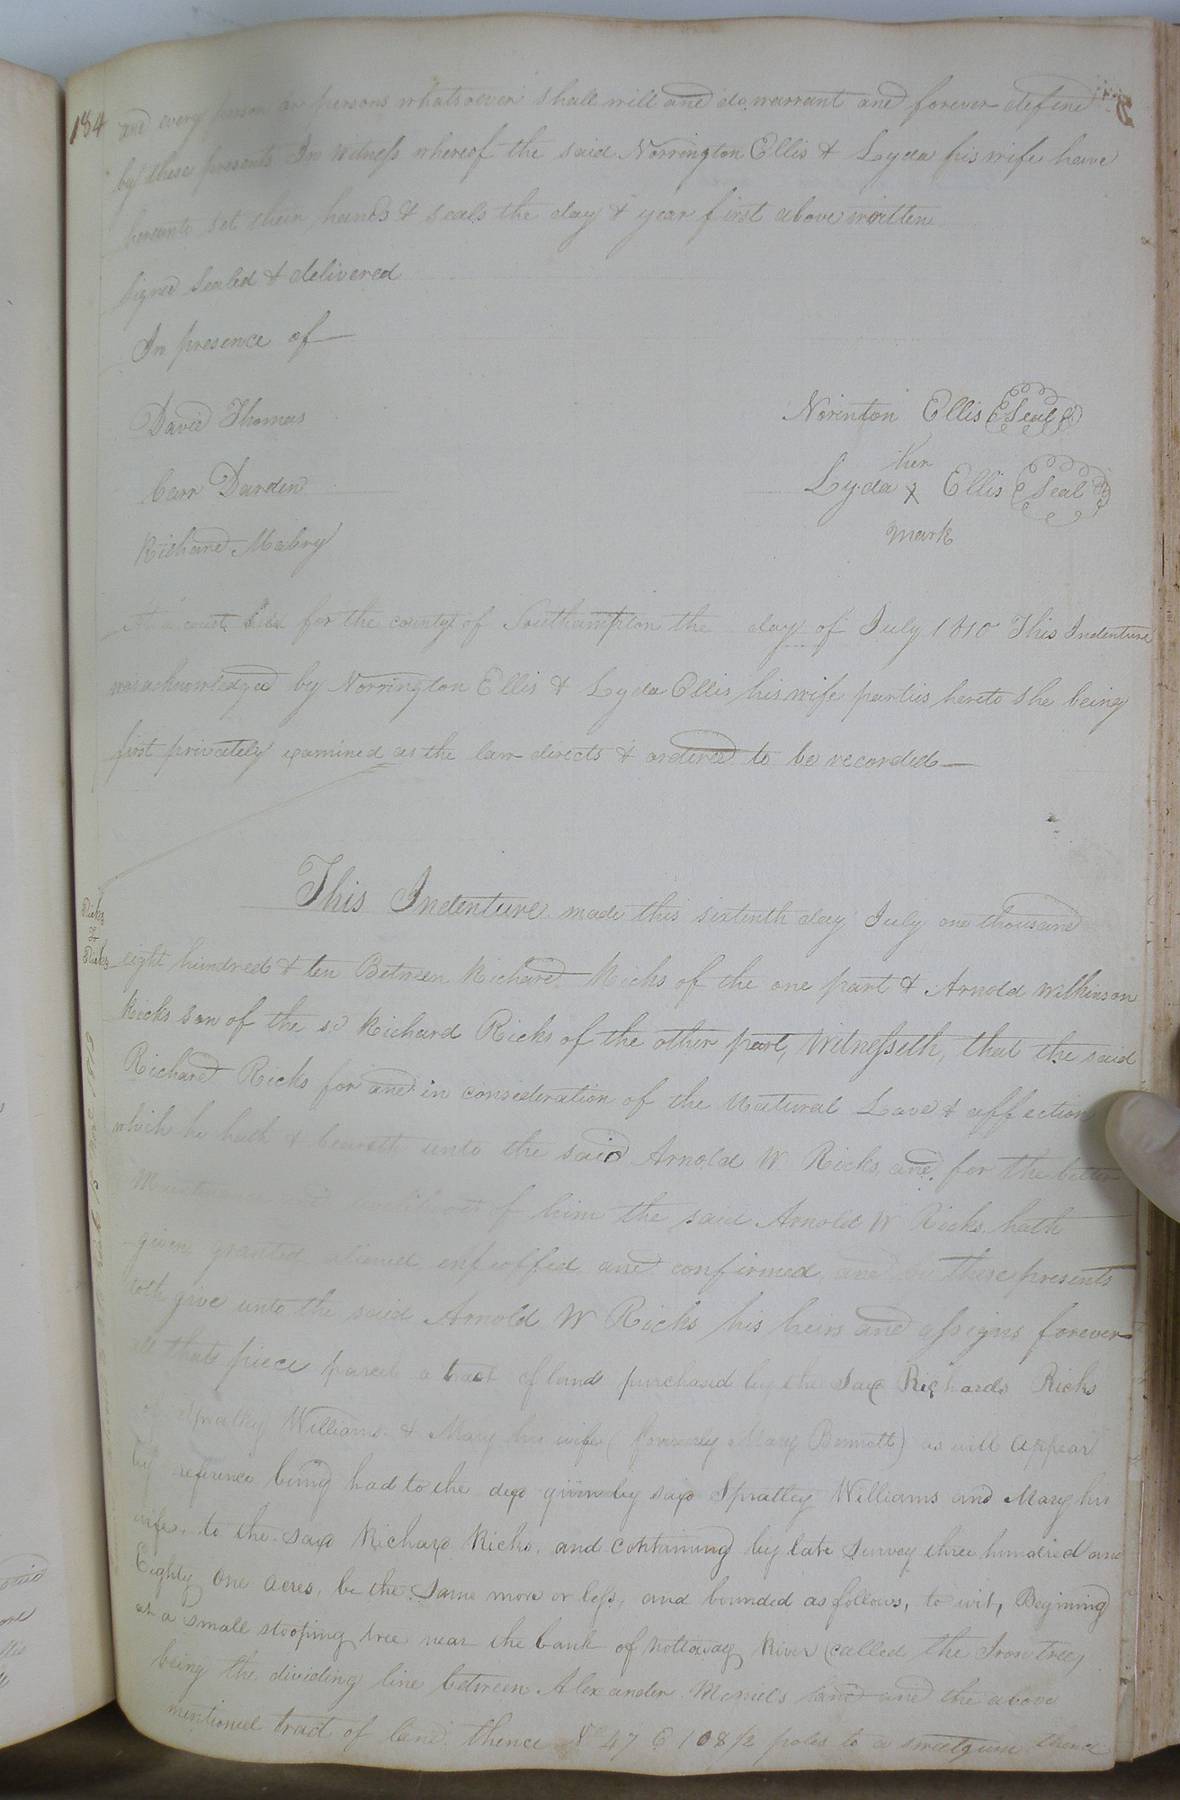 184
and every person or persons whatsoever shall will and do warrant and forever defend
by these presents In Witness whereof the said Norrington Ellis & Lyda his wife have
hereunto set their hands & seals the day & year first above written
Signed Sealed & delivered
In presence of
David Thomas
Norinton Ellis Seal
Carr Darden
her
Lyda X Ellis Seal
mark
Richard Mabry
At a court held for the county of Southampton the day of July 1810 This Indenture
was acknowledged by Norrington Ellis & Lyda Ellis his wife parties hereto she being
first privately examined as the law directs & ordered to be recorded
This Indenture made this sixtenth day July one thousand
Ricks
to
Ricks
eight hundred & ten Between Richard Ricks of the one part & Arnold Wilkinson
Ricks son of the sd Richard Ricks of the other part, Witnesseth, that the said
Richard Ricks for and in consideration of the Natural Love & affection
which he hath & beareth unto the said Arnold W Ricks and for the better
of him the said Arnold W Ricks hath
given granted aliened enfeoffed and confirmed and by these presents
doth give unto the said Arnold W Ricks his heirs and assigns forever
all that piece parcel a tract of land purchased by the Said Richards Ricks
of Spratley Williams & Mary his wife (formerly Mary Bennett) as will appear
by reference being had to the deed given by said Spratley Williams and Mary his
wife, to the said Richard Ricks. and containing by late Survey three hundred and
Eighty one acres, be the Same more or less, and bounded as follows, to wit, Begining
at a small stooping tree near the bank of Nottoway River (called the Iron tree)
being the dividing line between Alexander land and the above
mentioned tract of land thence N 47 E 108 1/2 poles to a sweetgum thence